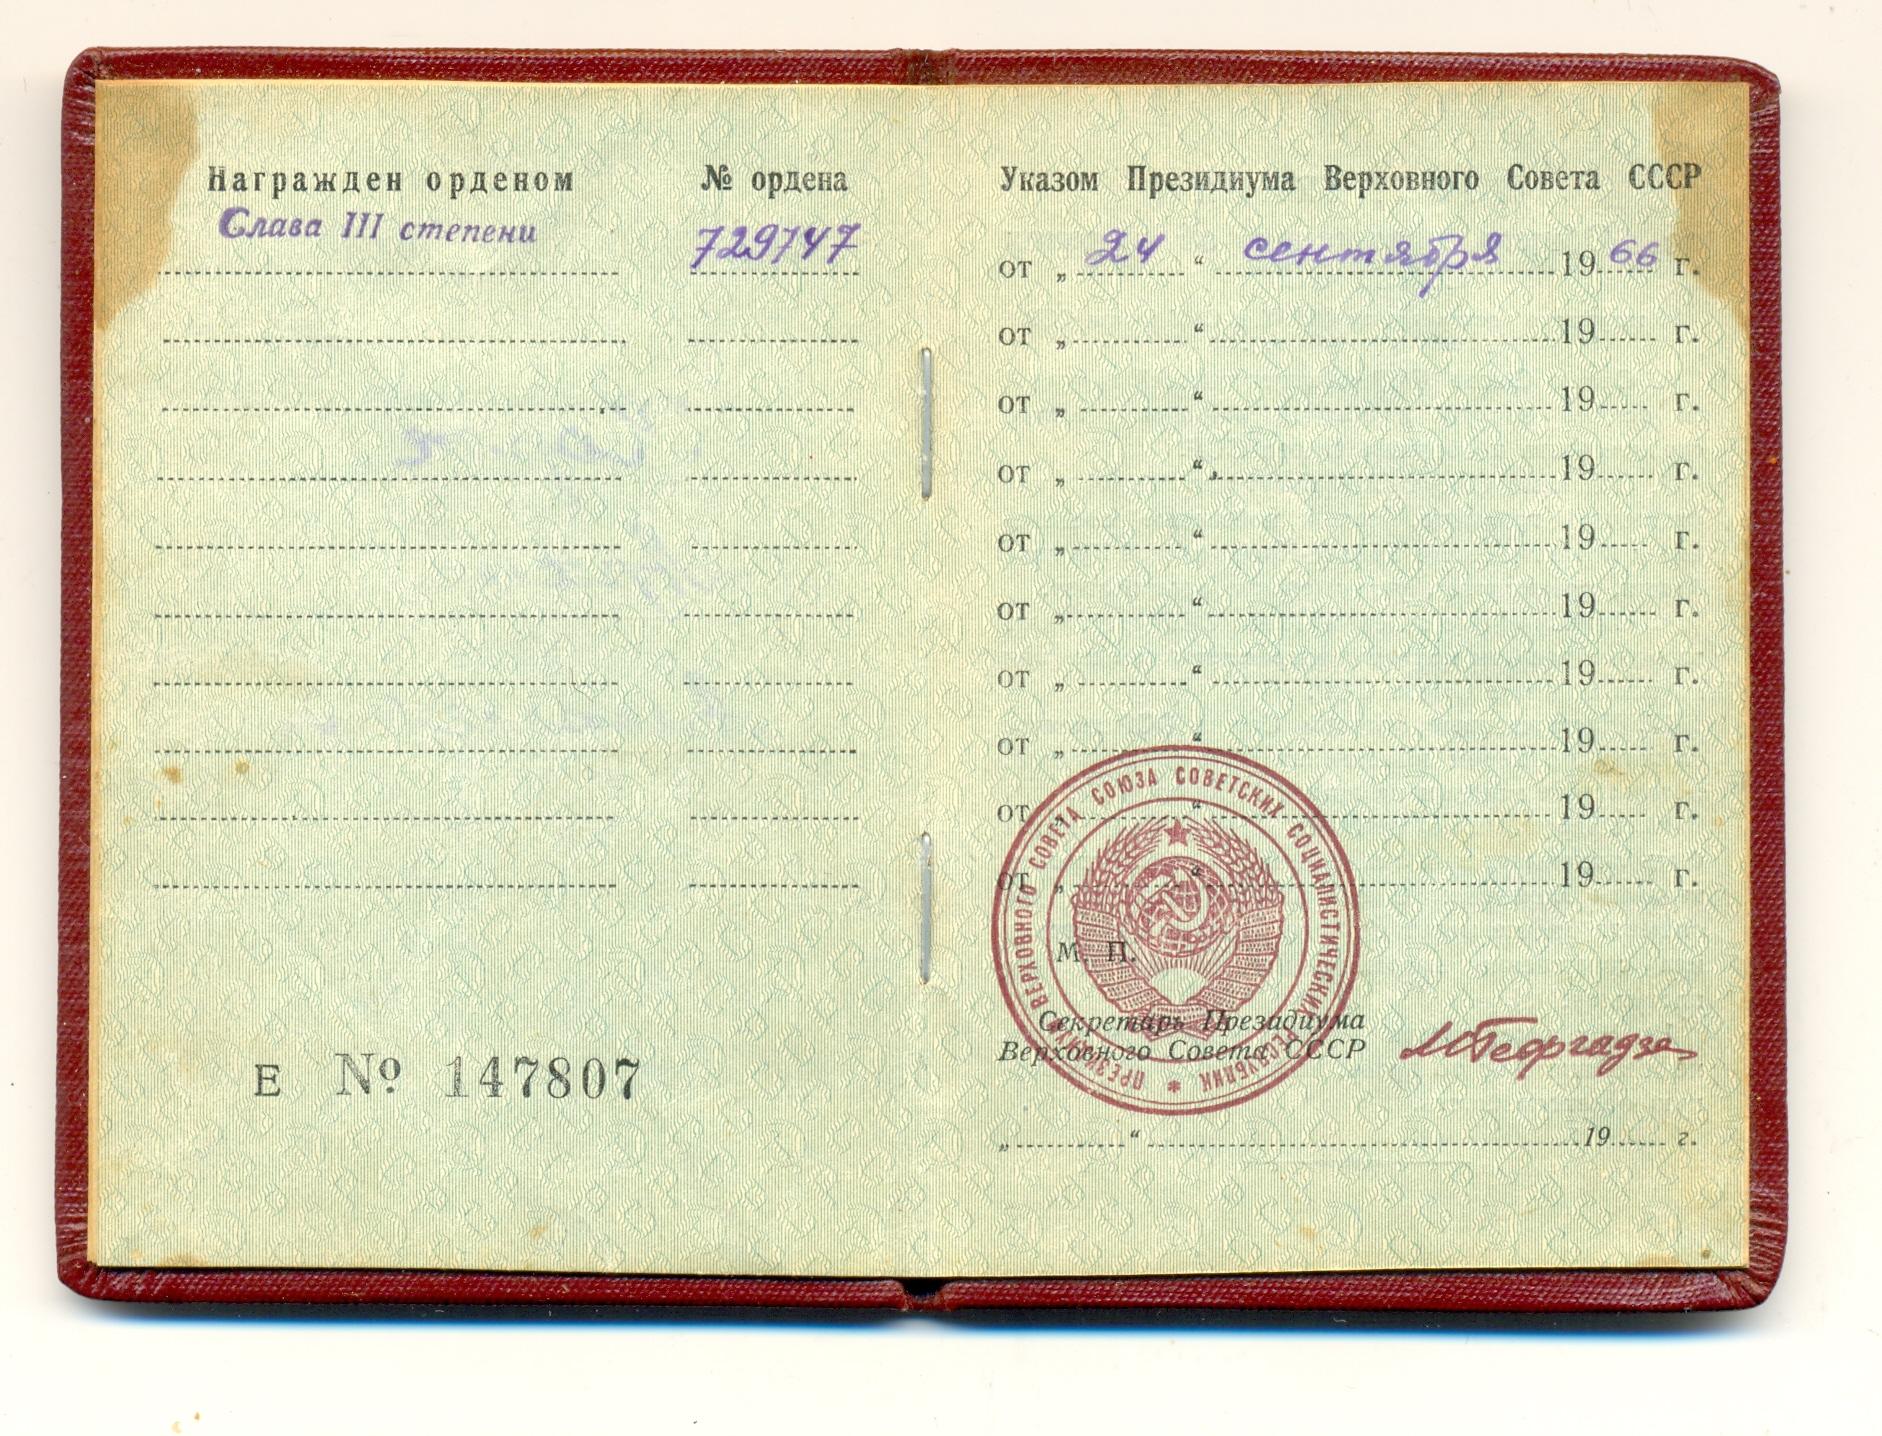 Награжден орденом № ордена Указом Президиума Верховного Совета СССР
Слава III степени 729747 от „ 24 “ сентября 19 66 г.
от „ “ 19 г.
от „ “ 19 г.
от „ “ 19 г.
от „ “ 19 г.
от „ “ 19 г.
от „ “ 19 г.
от „ “ 19 г.
от „ “ 19 г.
от „ “ 19 г.
М. П.
ПРЕЗИДИУМ ВЕРХОВНОГО СОВЕТА СОЮЗА СОВЕТСКИХ СОЦИАЛИСТИЧЕСКИХ РЕСПУБЛИК *
Секретарь Президиума
Верховного Совета СССР МГеоргадзе
Е № 147807
„ “ 19 г.